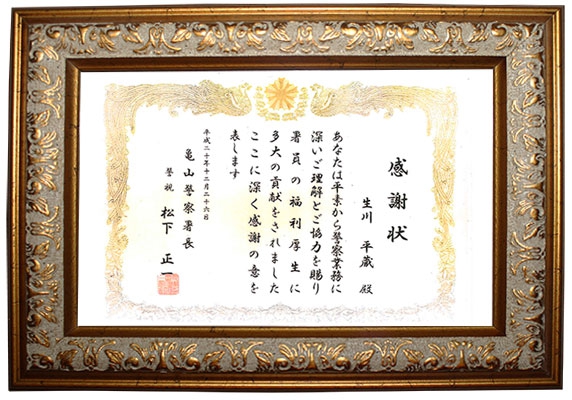 感謝状
生川 平蔵 殿
あなたは平素から警察業務に
深いご理解とご協力を賜り
署員の福利厚生に
多大の貢献をされました
ここに深く感謝の意を
表します
平成二十年十二月二十六日
亀山警察署長
警視 松下 正一